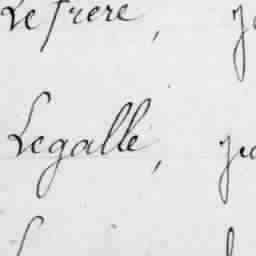 Lefrere,
Legallé,